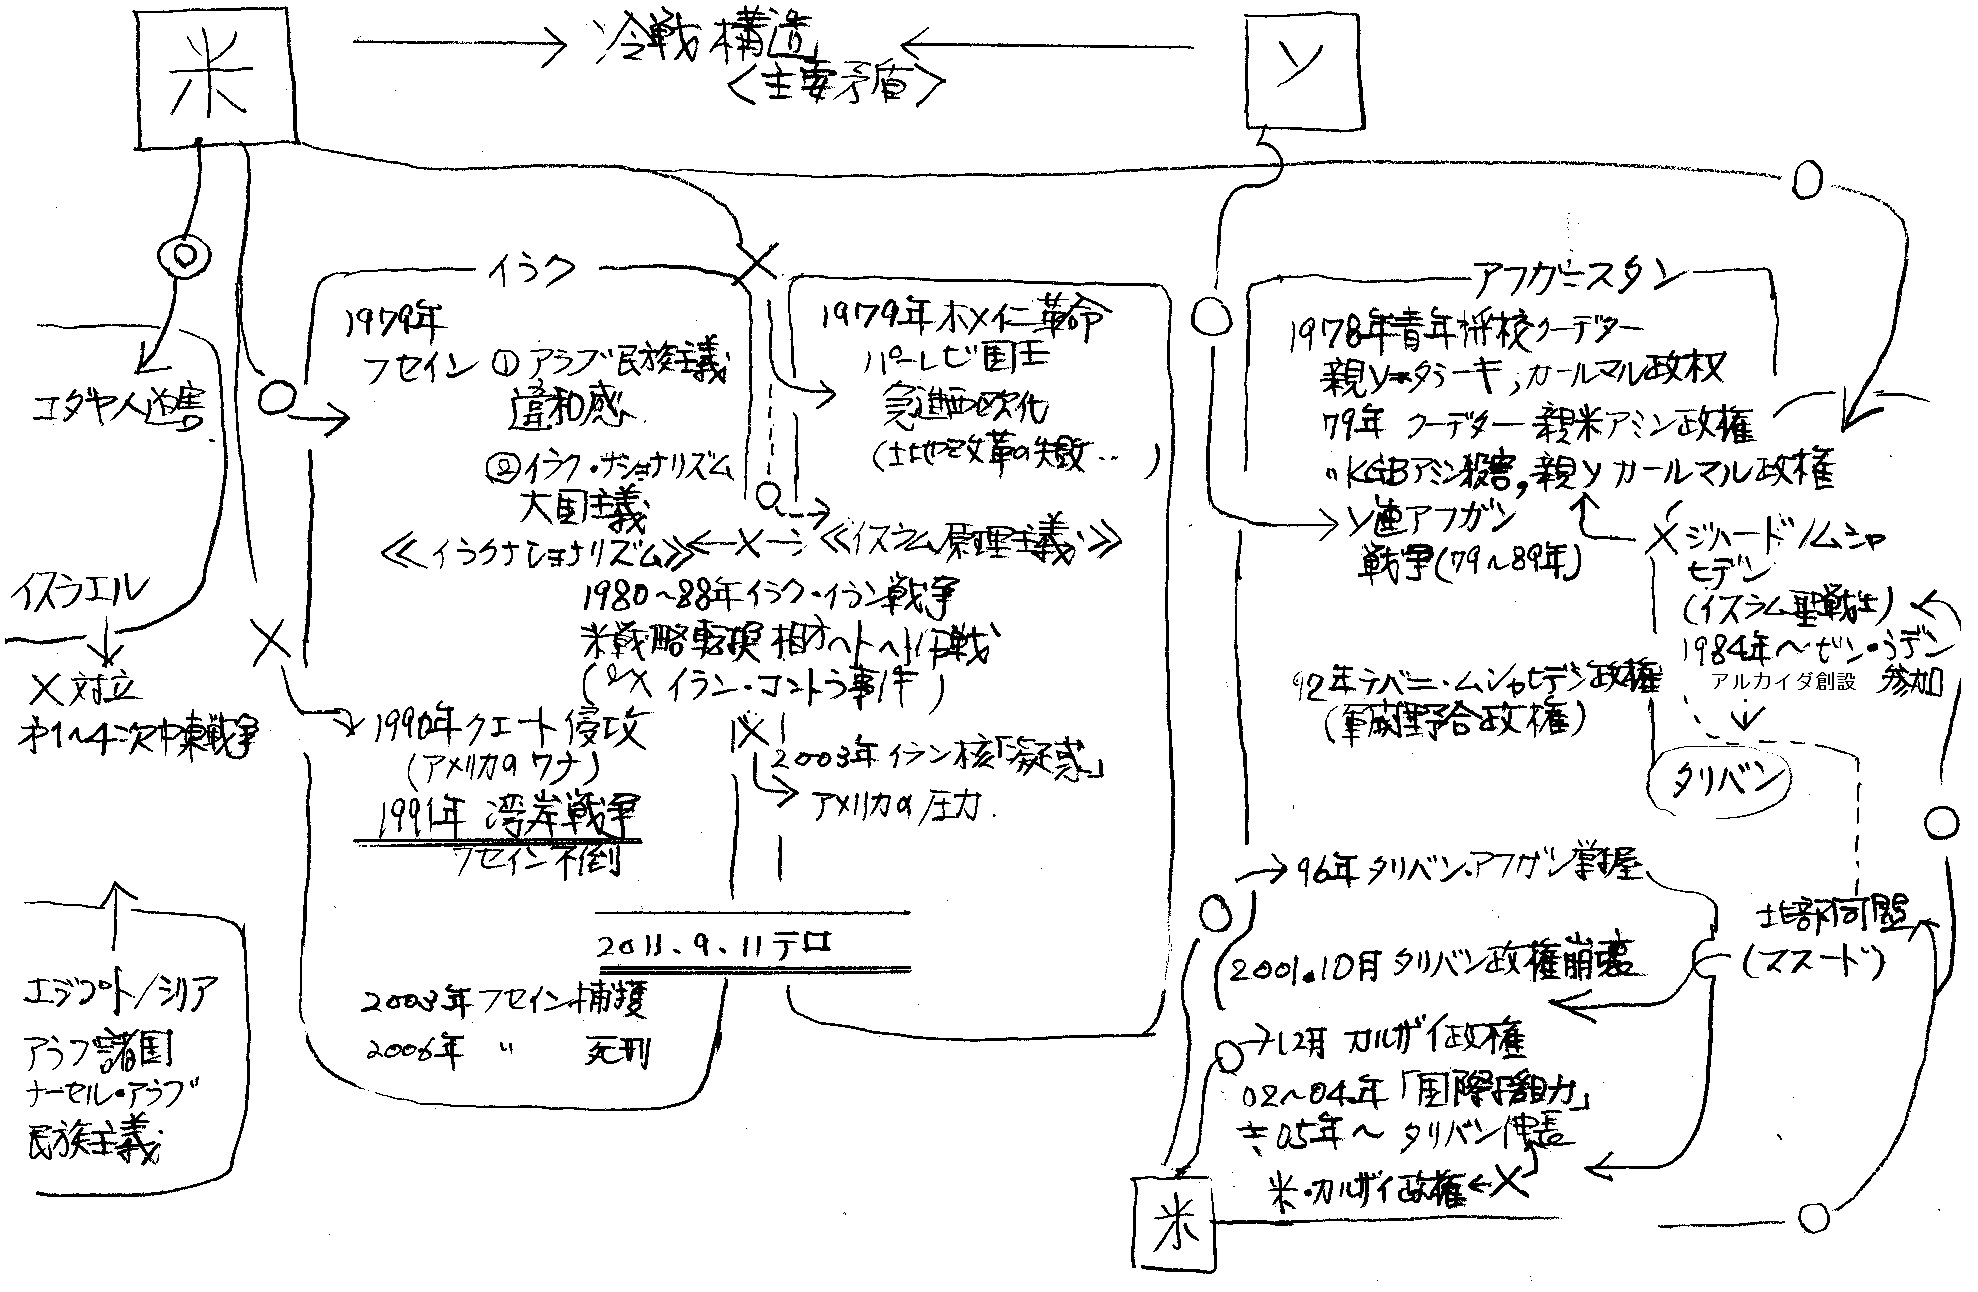 米
冷戦構造
<主要矛盾>
ソ
ユダヤ人迫害
イスラエル
×対立
才1~4次中東戦争
エジプト/シリア
アラブ諸国
ナーセル・アラブ
民族主義
イラク
1979年
フセイン ①アラブ民族主義
違和感
②イラク・ナショナリズム
大国主義
≪イラクナショナリズム≫
1979年ホメイニ革命
パーレビ国王
急進西欧化
(土地改革の失敗‥)
≪イスラム原理主義≫
1980~88年イラク・イラン戦争
米戦略転換 相方ヘトヘト作戦
イラン・コントラ事件)
1990年クエート侵攻
(アメリカのワナ)
1991年 湾岸戦争
フセイン不倒
2003年イラン核「疑惑」
アメリカの圧力
2011.9.11テロ
2003年フセイン捕獲
2006年 〃 死刑
アフガニスタン
1978年青年将校クーデター
親ソ タラーキ,カールマル政权
79年 クーデター 親米アミン政権
〃KGBアミン殺害,親ソ カールマル政権
ソ連アフガン
戦争(79~89年)
ジハード/ムシャ
ヒデン
(イスラム聖戦士)
1984年~ビン・ラデン
アルカイダ創設 参加
92年ラバニ・ムシャヒデン政権
(軍閥野合政権)
タリバン
96年タリバン・アフガン掌握
北部同盟
(マスード)
2001.10月タリバン政権崩壊
12月 カルザイ政権
02~04年「国際協力」
05年~ タリバン伸長
米・カルザイ政権
米